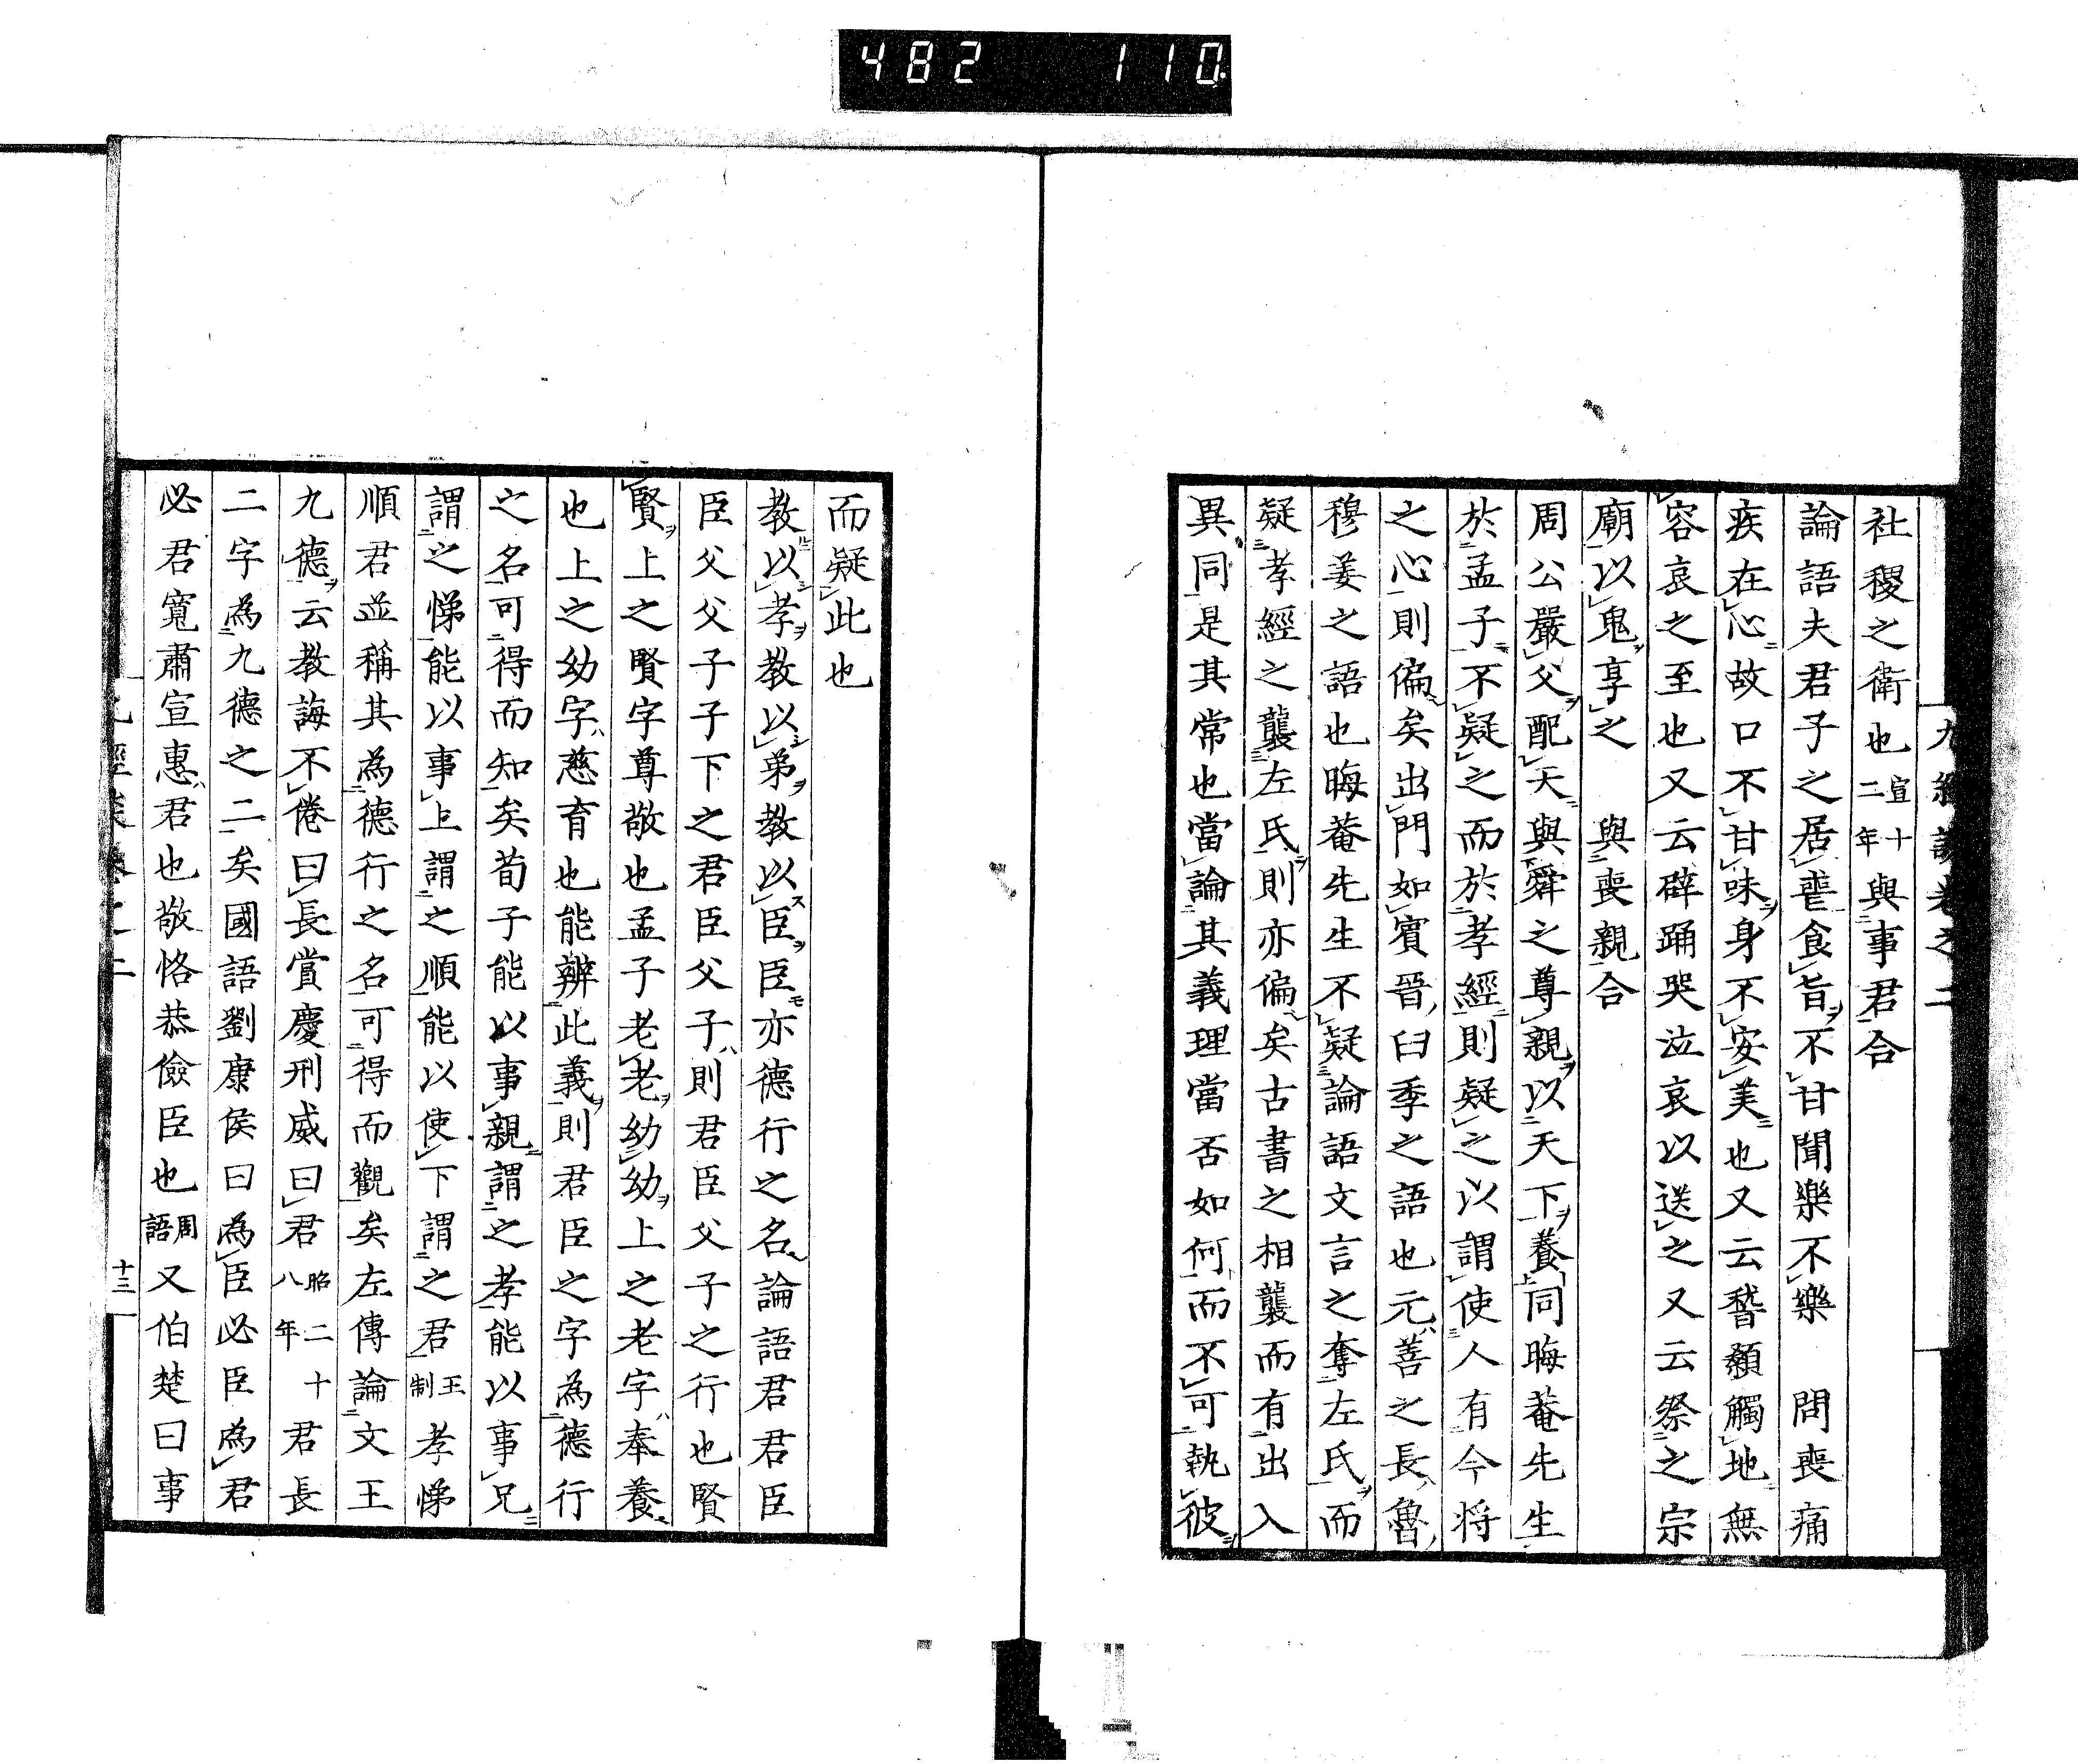 482 110
九經談卷之二
社稷之衛也宣十二年與事君合
論語夫君子之居喪食旨不甘聞樂不樂 問喪痛
疾在心故口不甘味身不安美也又云稽顙觸地無
容哀之至也又云辟踊哭泣哀以送之又云祭之宗
廟以鬼享之 與喪親合
周公嚴父配天與舜之尊親以天下養同晦菴先生
於孟子不疑之而於孝經則疑之以謂使人有今将
之心則偏矣出門如賓晉臼季之語也元善之長魯
穆姜之語也晦菴先生不疑論語文言之奪左氏而
疑孝經之襲左氏則亦偏矣古書之相襲而有出入
異同是其常也當論其義理當否如何而不可執彼
而疑此也
教以孝教以弟教以臣臣亦德行之名論語君君臣
臣父父子子下之君臣父子則君臣父子之行也賢
賢上之賢字尊敬也孟子老老幼幼上之老字奉養
也上之幼字慈育也能辨此義則君臣之字為德行
之名可得而知矣荀子能以事親謂之孝能以事兄
謂之悌能以事上謂之順能以使下謂之君王制孝悌
順君並稱其為德行之名可得而觀矣左傳論文王
九德云教誨不倦曰長賞慶刑威曰君昭二十八年君長
二字為九德之二矣國語劉康侯曰為臣必臣為君
必君寬肅宣惠君也敬恪恭儉臣也周語又伯楚曰事
十三